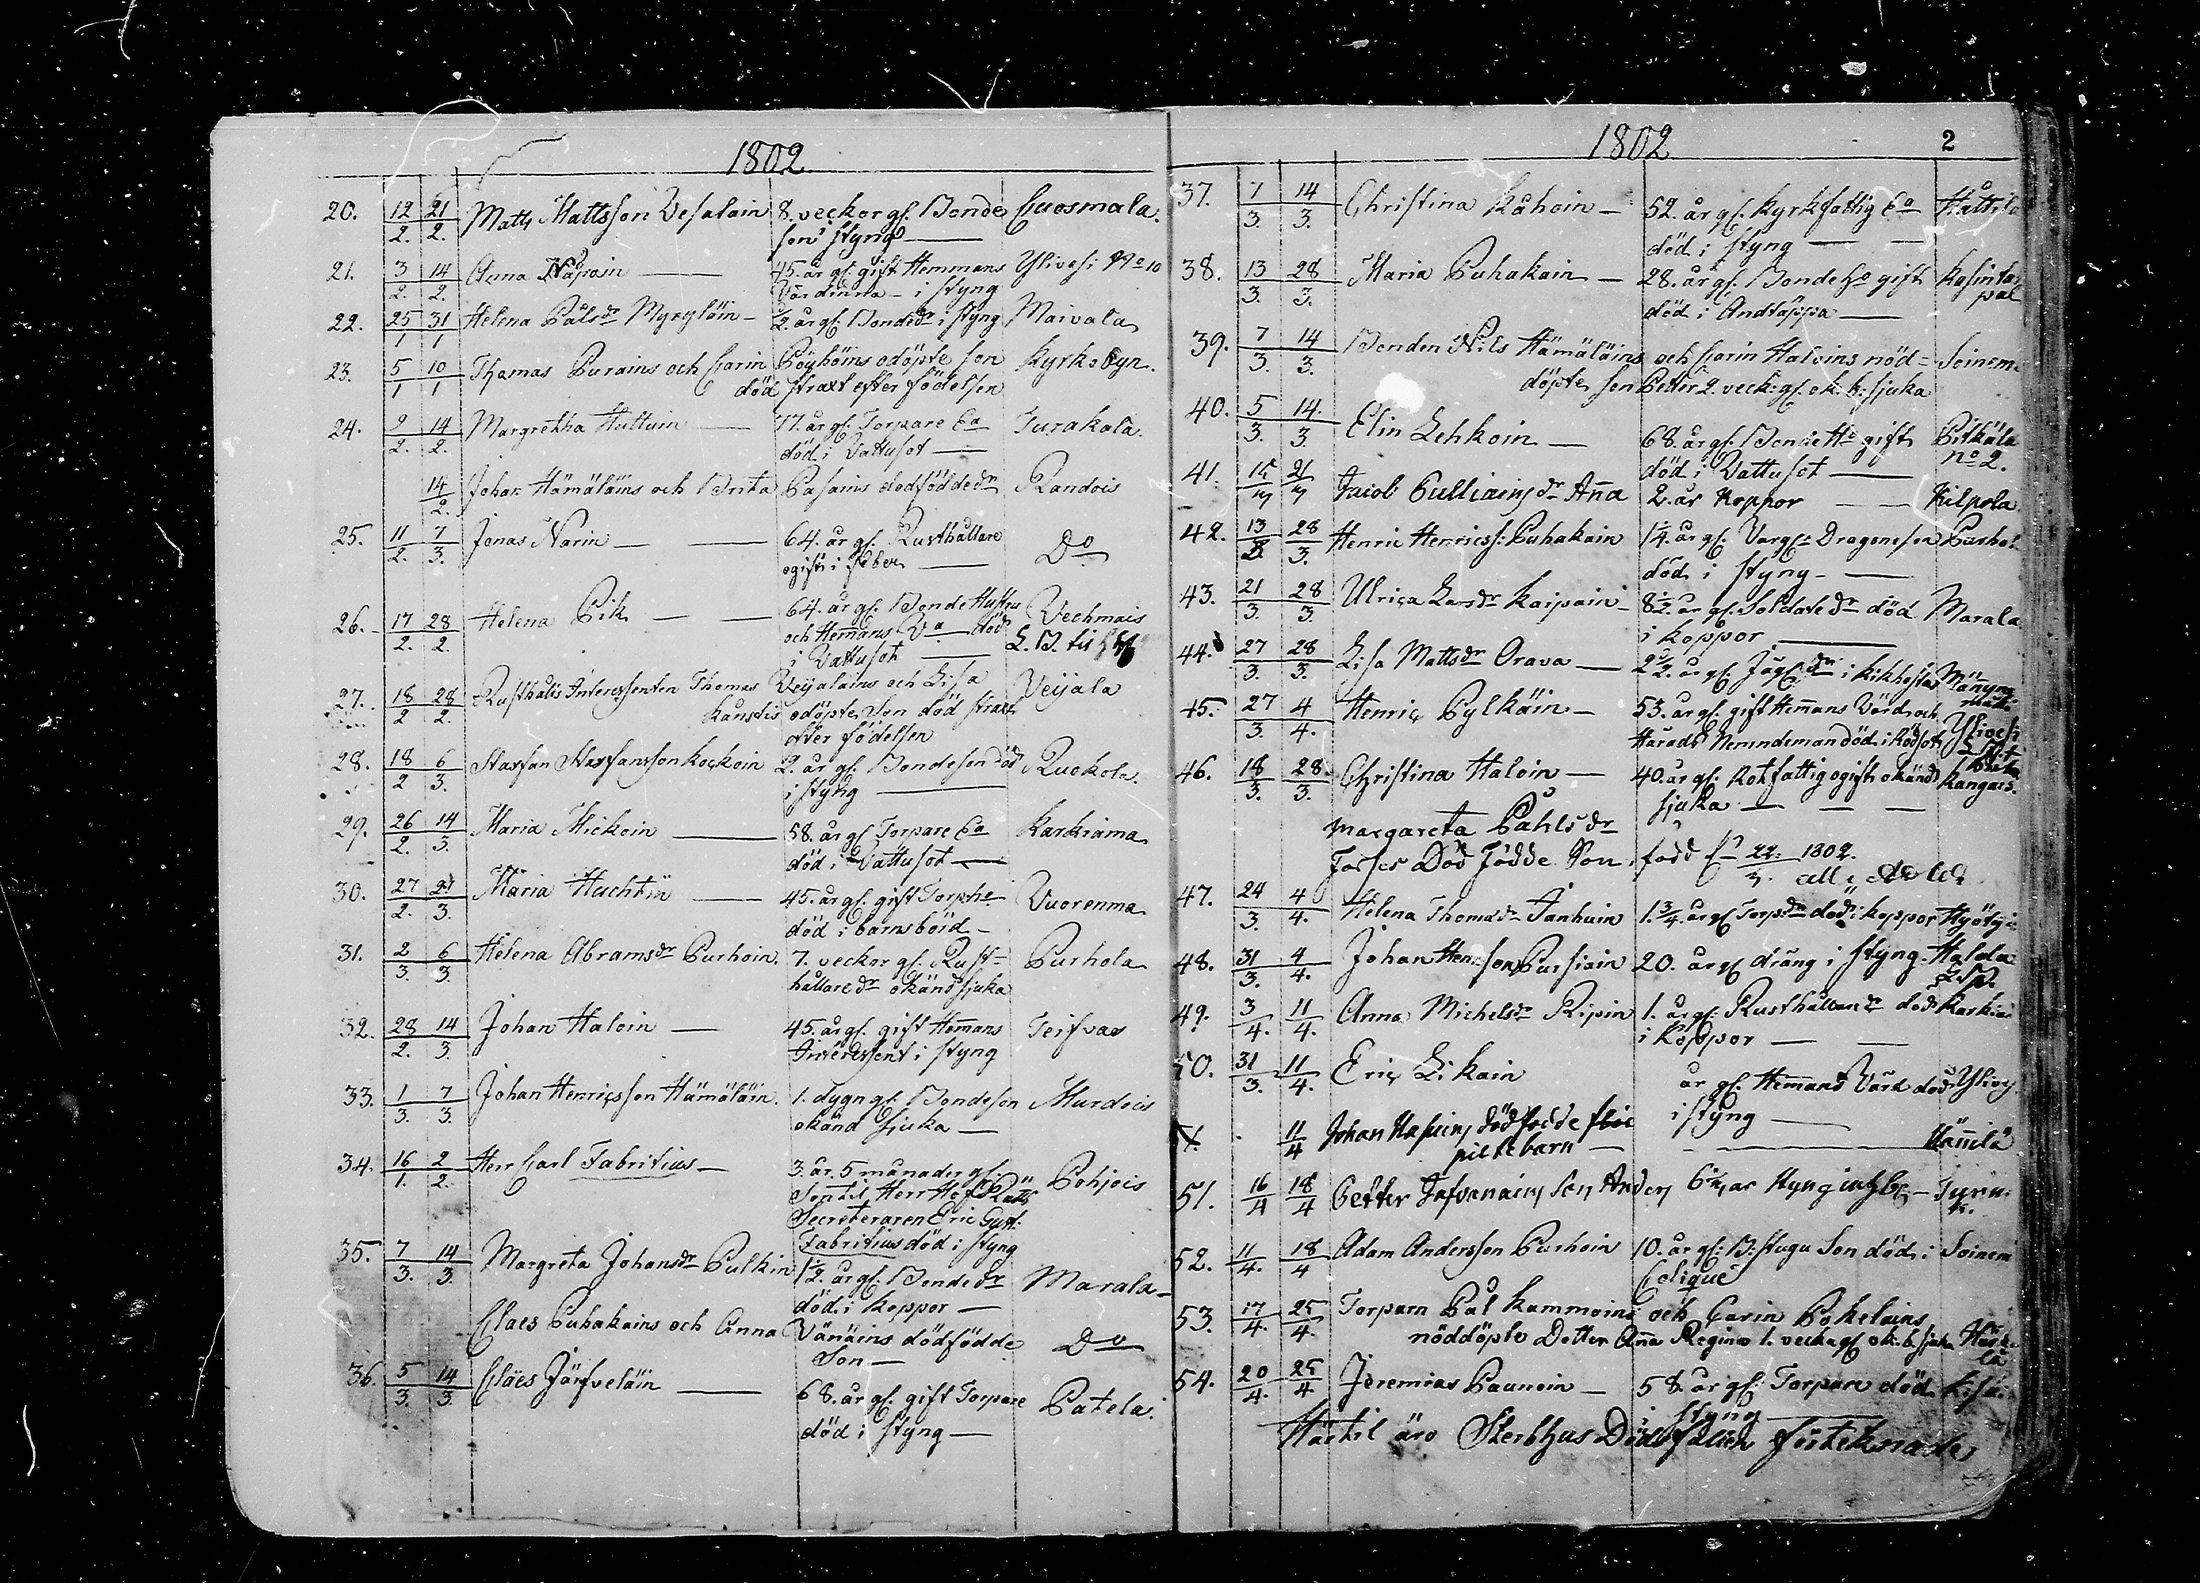 1802.
20. 12/2. 21/2. Matts Mattsson Vesalain 8. veckor gl. Bonde Cuosmala.
son styng
21. 3/2. 14/2. Anna 45. år gl. gift Hemmans Ylivesi No 10
Värdinna i styng
22. 25/1 31/1 Helena Pålsdr Myryläin 1/2 år gl. Bondedr i styng Maivala
23. 5/1 10/1 Thomas Purains och Carin Pöyhöins odöpte son Kyrkobyn.
död straxt efter födelsen
24. 9/2. 14/2. Margretha Huttuin 77. år gl. Torpare Ea Turakala.
död i Vattusot
14/2. Johan Hämäläins och Brita Pasains dödfödde dr Randois
25. 11/2. 7/3. Jonas Narin 64. år gl. Rusthållare Do
ogift i feber
26. 17/2. 28/2. Helena Pik 64. år gl. Bonde Hustru Vechmais
och Hemans Va död
i Vattusot
27. 18/2 28/2. Rusthålls Interessenten Thomas Veijalains och Lisa Veijala
odöpte son död straxt
efter födelsen
28. 18/2 6/3. Staffan Staffansson Kockoin 2. år gl. Bondeson död Ruokola.
i styng
29. 26/2. 14/3. Maria Mickoin 58. år gl. Torpare Ea Karkiama
död i Vattusot
30. 27/2. 21/3. Maria Huchtin 45. år gl. gift Torphu Vuorenma
död i barnsbörd
31. 2/3. 6/3. Helena Abramsdr Purhoin. 7. veckor gl. Rust= Purhola
hållare dr okänd sjuka
32. 28/2. 14/3. Johan Haloin 45. år gl. gift Hemans
Interessent i styng
33. 1/3. 7/3. Johan Henricsson Hämäläin. 1. dygn gl. Bondeson Murdois
okänd sjuka
34. 16/1. 2/2. Herr Carl Fabritius 3. år. 5 månader gl. Pohjois
Son til Herr HofRätts
Secreteraren Eric Gust:
Fabritius död i styng
35. 7/3. 14/3. Margreta Johansdr Pulkin 1 1/2. år gl. Bonde dr Marala
död i koppor
Claes Puhakains och Anna Vänäins dödfödde Do
Son
36. 5/3. 14/3. Claes Järfveläin 68. år gl. gift Torpare Patela.
död i styng
1802 2
37. 7/3. 14/3. Christina Kåhoin 52. år gl. kyrkfattig Ea
död i styng
38. 13/3. 28/3. Maria Puhakain 28. år gl. Bonde Ho gift
död i Andtäppa
39. 7/3. 14/3. Bonden Nils Hämäläins och Carin Haloins nöd= Soinem
döpte son Petter 2. veck: gl. ok. b. sjuka
40. 5/3. 14/3 Elin Lehkoin 68. år gl. Bonde Ho gift Pitkäla
död i Vattusot no 2.
41. 15/3 21/3 Jacob Pulliains dr Aña 2. år koppor Kilpola
42. 13/3 28/3. Henric Henricss: Puhakain 1 1/4. år gl. Varge: Dragoneson
död i styng
43. 21/3. 28/3. Ulrica Larsdr Kaipain 8 1/2. år gl. Soldate dr död Marala
i koppor
44. 27/3. 28/3. Lisa Mattsdr Orava 2 1/2. år gl. dr i kikhosta
45. 27/3. 4/4. Henric Pylkäin 53. år gl. gift Hemans Värd och
Härads Nemndeman död i Rödsot
46. 18/3. 28/3. Christina Haloin 40. år gl. Rotfattig ogift okänd Kangais.
sjuka
Margareta Påhls dr
Död Födde Son, född 22/3. 1802.
47. 24/3. 4/4. Helena Thomasdr Janhuin 1. 3/4. år gl. Torpdr död i koppor
48. 31/3. 4/4. Johan Hensson Pursiain 20. år gl dräng i styng.
49. 3/4. 11/4. Anna Michelsdr Ripin 1. år gl. Rusthållare dr död
i Koppor
50. 31/3. 11/4. Eric Likain år gl. Hemans Värd död
i styng
11/4 Johan dödfödde
piltebarn
51. 16/4 18/4 Petter son
52. 11/4. 18/4 Adam Andersson Purhoin 10. år gl: B. stugu Son död i Soinem
Colique
53. 17/4. 25/4. Torparn Pål Kammoins och Carin Pokelains
nöddöpte Dotter Aña Regina 1. vecka gl. ok. b. sjuka
54. 20/4. 25/4 Jeremias Paunoin 58. år gl. Torpare död
i styng
Härtil äro Sterbhus Dödsfallen förteknade